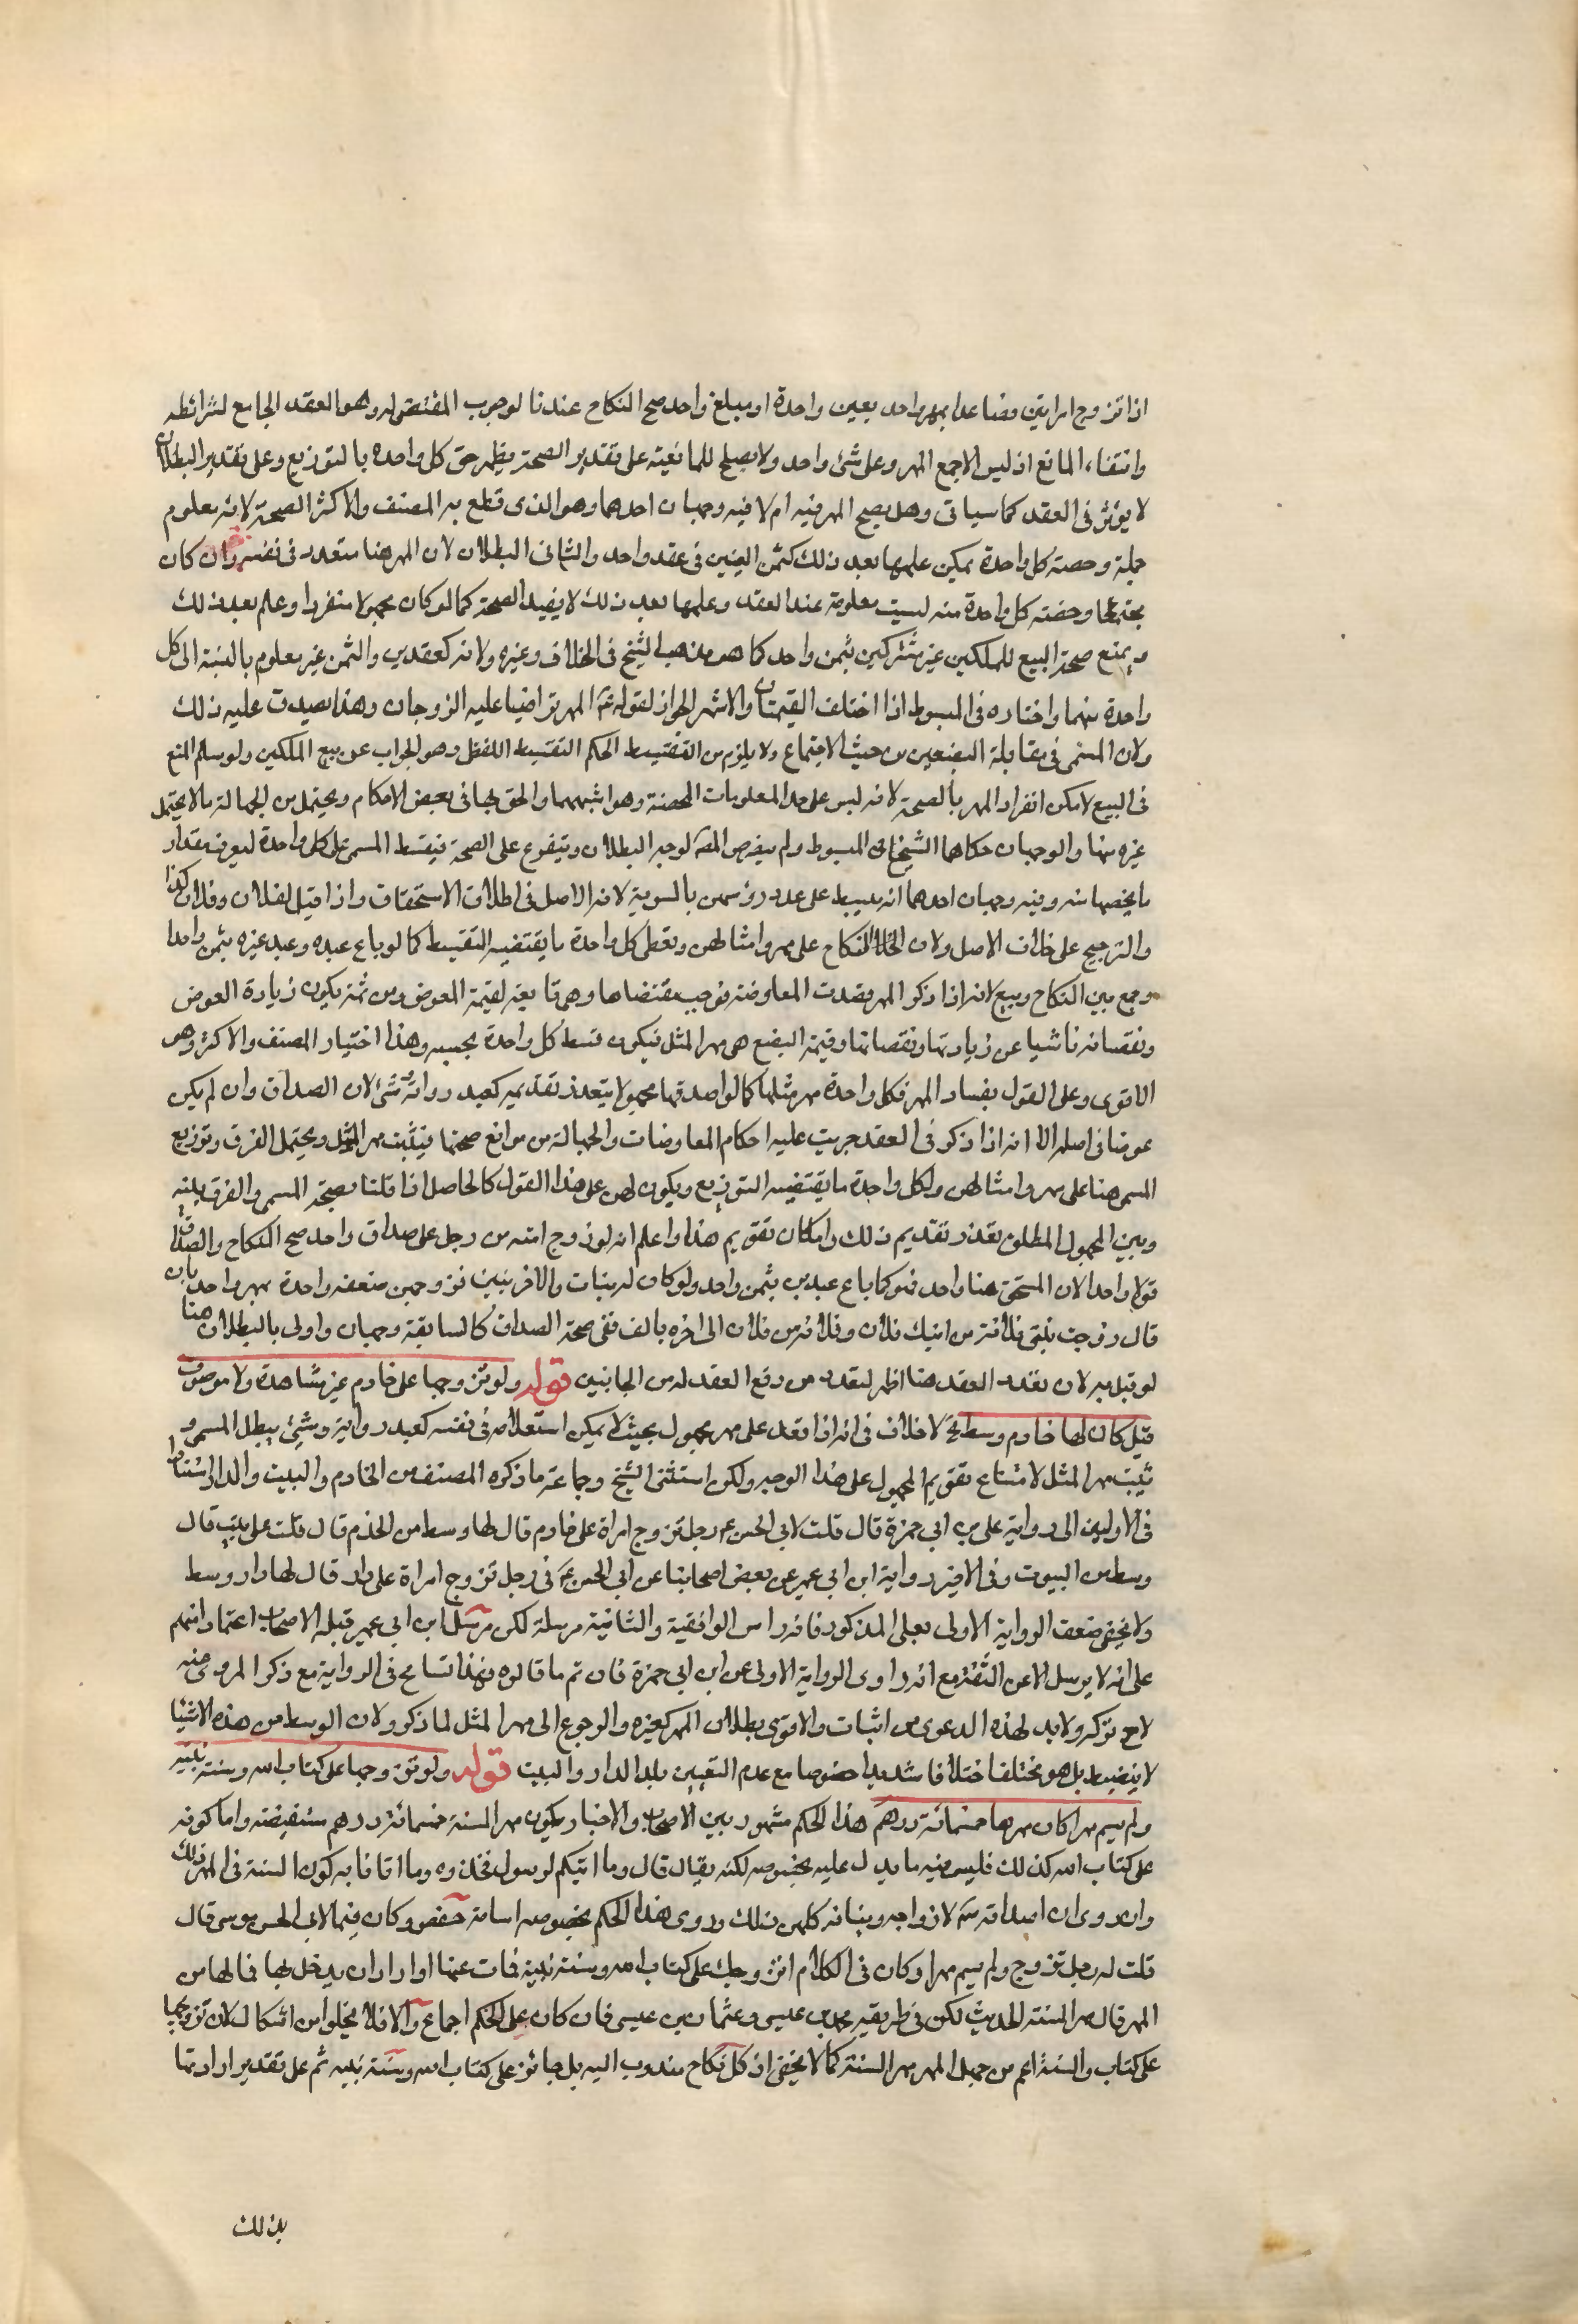 اذا تزوج امراتين فصاعدا بمهر واحد بعين واحدة او مبلغ واحد صح النكاح عندنا لوجوب المقتضى له وهو العقد الجامع لشرائطه
وانتفاء المانع اذ ليس الاجمع المهر وعلى شئ واحد ولا يصلح للمانعية على تقدير الصحة يظهر حق كل واحدة بالتوزيع وعلى تقدير البطلان
لا يؤثر في العقد كما سياتى وهل يصح المهر فيه ام لا فيه وجهان احدهما وهو الذى قطع به المصنف والاكثر الصحة لانه معلوم
جملة وحصته كل واحدة يمكن علمها بعد ذلك كثمن العينين في عقد واحد والثانى البطلان لان المهر هنا متعدد في نفسه وان كان
مجتمعا وحصته كل واحدة منه ليست معلومة عند العقد وعلمها بعد ذلك لا يفيد الصحة كما لو كان مجهولا منفردا وعلم بعد ذلك
ويمنع صحة البيع للملكين غير مشتركين بثمن واحد كما هو مذهب الشيخ في الخلاف وغيره ولانه كعقدين والثمن غير معلوم بالنسبة الى كل
واحدة منهما واختاره في المبسوط اذا اختلف القيمتان والاشهر الجواز لقوله ع المهر تراضيا عليه الزوجان وهذا يصدق عليه ذلك
ولان المسمى في مقابلة البضعين من حيث الاجتماع ولا يلزم من التقسيط الحكم التقسيط اللفظى وهو الجواب عن بيع الملكين ولو سلم المنع
في البيع لامكن انفراد المهر بالصحة لانه ليس على حد المعلومات المحضة وهو اشبههما والحق بها في بعض الاحكام ويحتمل من الجهالة ما لا يحتمل
غيره منها والوجهان حكاهما الشيخ في المبسوط ولم يفرض المصة لوجه البطلان ويتفرع على الصحة فيقسط المسمى على كل واحدة ليعرف مقدار
ما يخصها منه وفيه وجهان احدهما انه يبسط على عدد رؤسهن بالسوية لانه الاصل في اطلاق الاستحقاق واذا قيل لفلان وفلان كذا
والترجيح على خلاف الاصل ولان النكاح على مهر وامثالهن ويعطى كل واحدة ما يقتضيه التقسيط كما لو باع عبده وعبد غيره بثمن واحد
وجمع بين النكاح وبيع لانه اذا ذكر المهر بقصد المعاوضة فوجب مقتضاها وهو تابعة لقيمة المعوض ومن ثمة يكون زيادة العوض
ونقصانه ناشيا عن زيادتها ونقصانها وقيمة البضع هى مهر المثل فيكون قسط كل واحدة بحسبه وهذا اختيار المصنف والاكثر وهو
الاقوى وعلى القول بفساد المهر فكل واحدة مهر مثلها كما لو اصدقها مجهولا يتعذر تقديمه كعبد ودابة وشئ لان الصداق وان لم يكن
عوضا في اصله الا انه اذا ذكر في العقد جريت عليه احكام المعاوضات والجهالة من موانع صحتها فيثبت مهر المثل ويحتمل الفرق وتوزيع
المسمى هنا على مهر وامثالهن ولكل واحدة ما يقتضيه التوزيع ويكون لهن على هذا القول كالحاصل اذا قلنا بصحة المسمى والفرق بينه
وبين المجهول المطلق بعذر تقديم ذلك وامكان تقويم هذا واعلم انه لو زوج امته من رجل على صداق واحد صح النكاح والصداق
قولا واحدا لان المستحق هنا واحد فهو كما باع عبدين بثمن واحد ولو كان له بنات والاخر بنين فزوجهن صفقة واحدة بمهر واحد بان
قال زوجت بنتى فلانة من ابنك فلان وفلانة من فلان الى اخره بالف ففى صحة الصداق كالسابقة وجهان واولى بالبطلان هنا
لو قيل به لان تعدد العقد هنا اظهر لتعدد من وقع العقد له من الجانبين قوله ولو تزوجها على خادم غير مشاهدة ولا موصوف
قيل كان لها خادم وسط الخ لا خلاف في انه اذا تعقد على مهر مجهول بحيث لا يمكن استعلامه في نفسه كعبد ودابة وشئ يبطل المسمى و
يثبت مهر المثل لامتناع تقويم المجهول على هذا الوجه ولكن استثنى الشيخ وجماعة ما ذكره المصنف من الخادم والبيت والدار استنادا
في الاولين الى رواية على بن ابى حمزة قال قلت لابى الحسن ع رجل تزوج امراة على خادم قال لها وسط من الخدم قال قلت على بيت قال
وسط من البيوت وفى الاخير رواية ابن ابى عمير عن بعض اصحابنا عن ابى الحسن ع في رجل تزوج امراة على دار قال لها دار وسط
ولا يخفى ضعف الرواية الاولى بعلى المذكور فانه راس الواقفية والثانية مرسلة لكن مرسل ابن ابى عمير قبله الاصحاب اعتمادا منهم
على انه لا يرسل الا عن الثقة مع انه راوى الرواية الاولى عن ابن ابى حمزة فان تم ما قالوه فهذا تسامح في الرواية مع ذكر المروى عنه
لاح تركه ولابد لهذه الدعوى من اثبات والاقوى بطلان المهر كغيره والرجوع الى مهر المثل لما ذكر ولان الوسط من هذه الاشياء
لا ينضبط بل هو مختلف اختلافا شديدا خصوصا مع عدم التعيين بلد الدار والبيت قوله ولو تزوجها على كتاب الله وسنة نبيه
ولم يسم مهرا كان مهرها خمسمائة درهم هذا الحكم مشهور بين الاصحاب والاخبار بكون مهر السنة خمسمائة درهم مستفيضة واما كونه
على كتاب الله كذلك فليس فيه ما يدل عليه بخصوصه لكنه يقال قال وما اتيكم الرسول فخذوه ومما اتانا به كون السنة في المهر ذلك
وان روى ان اصداقه ص لازواجه وبناته كلهن ذلك وروى هذا الحكم بخصوصه اسامة حفص وكان قيما لابى الحسن موسى قال
قلت له رجل تزوج ولم يسم مهرا وكان في الكلام اتزوجك على كتاب الله وسنة نبيه فمات عنها او اراد ان يدخل بها فما لها من
المهر قال مهر السنة الحديث لكن في طريقه محمد بن عيسى وعثمان بن عيسى فان كان على الحكم اجماع والا فلا يخلوا من اشكال لان تزوجها
على كتاب والسنة اعم من جعل المهر مهر السنة كما لا يخفى اذ كل نكاح مندوب اليه بل جائز على كتاب الله وسنة نبيه ثم على تقدير ارادتها
بذلك